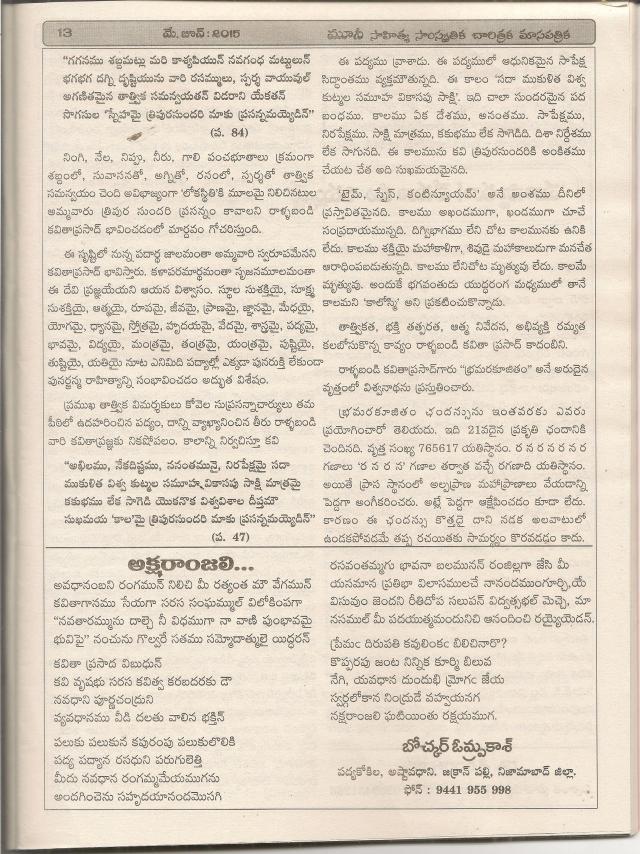 13
మే, జూన్ : 2015
మూసీ సాహిత్య సాంస్కృతిక చారిత్రక మాసపత్రిక
"గగనము శబ్దమట్లు మరి కాశ్యపియున్ నవగంధ మట్టులున్
భగభగ దగ్ని దృష్టియును వారి రసమ్ములు, స్పర్శ వాయువుల్
అగణితమైన తాత్త్విక సమన్వయతన్ విడరాని యేకతన్
సాగసుల "స్నేహమై త్రిపురసుందరి మాకు ప్రసన్నమయ్యెడిన్"
(ప. 84)
నింగి, నేల, నిప్పు, నీరు, గాలి పంచభూతాలు క్రమంగా
శబ్దంలో, సువాసనతో, అగ్నిత్రో, రసంలో, స్పర్శతో తాత్త్విక
సమన్వయం చెంది అవిభాజ్యంగా 'లోకస్థితి'కి మూలమై నిలిచినటుల
అమ్మవారు త్రిపుర సుందరి ప్రసన్నం కావాలని రాళ్ళబండి
కవితాప్రసాద్ భావించడంలో మార్దవం గోచరిస్తుంది.
ఈ సృష్టిలో నున్న పదార్థ జాలమంతా అమ్మవారి స్వరూపమేనని
కవితాప్రసాద్ భావిస్తారు. కళాపరమార్థమంతా సృజనమూలమంతా
ఈ దేవి ప్రజ్ఞయేయని ఆయన విశ్వాసం. స్థూల సుశక్తియై, సూక్ష్మ
సుశక్తియై, ఆత్మయై, రూపమై, జీవమై, ప్రాణమై, జ్ఞానమై, మేధయై,
యోగమై, ధ్యానమై, స్తోత్రమై, హృదయమై, వేదమై, శాస్త్రమై, పద్యమై,
భావమై, విద్యయై, మంత్రమై, తంత్రమై, యంత్రమై, పుష్టియై,
తుష్టియై, యతియై నూట ఎనిమిది పద్యాల్లో ఎక్కడా పునరుక్తి లేకుండా
పునర్జన్మ రాహిత్యాన్ని సంభావించడం అద్భుత విశేషం.
ప్రముఖ తాత్త్విక విమర్శకులు కోవెల సుప్రసన్నాచార్యులు తమ
పీఠిలో ఉదహరించిన పద్యం, దాన్ని వ్యాఖ్యానించిన తీరు రాళ్ళబండి
వారి కవితాప్రజ్ఞకు నికషోపలం. కాలాన్ని నిర్వచిస్తూ కవి
"అఖిలము, నేకదిష్టము, ననంతమునై, నిరపేక్షమై సదా
ముకుళిత విశ్వ కుట్మల సమూహ వికాసపు సాక్షి మాత్రమై
కకుభము లేక సాగెడి యొకానొక విశ్వవిశాల దీప్తమౌ
సుఖమయ 'కాల'మై త్రిపురసుందరి మాకు ప్రసన్నమయ్యెడిన్"
(ప. 47)
ఈ పద్యము వ్రాశాడు. ఈ పద్యములో ఆధునికమైన సాపేక్ష
సిద్ధాంతము వ్యక్తమౌతున్నది. ఈ కాలం 'సదా ముకుళిత విశ్వ
కుట్మల సమూహ వికాసపు సాక్షి'. ఇది చాలా సుందరమైన పద
బంధము. కాలము ఏక దేశము, అనంతము. సాపేక్షము,
నిరపేక్షము. సాక్షి మాత్రము, కకుభము లేక సాగెడిది. దిశా నిర్దేశము
లేక సాగునది. ఈ కాలమును కవి త్రిపురసుందరికి అంకితము
చేయుట చేత అది సుఖమయమైనది.
'టైమ్, స్పేస్, కంటిన్యూయమ్' అనే అంశము దీనిలో
ప్రస్తావితమైనది. కాలము అఖండముగా, ఖండముగా చూచే
సంప్రదాయమున్నది. దిగ్విభాగము లేని చోట కాలమునకు ఉనికి
లేదు. కాలము శక్తియై మహాకాళిగా, శివుడై మహాకాలుడుగా మనచేత
ఆరాధింపబడుతున్నది. కాలము లేనిచోట మృత్యువు లేదు. కాలమే
మృత్యువు. అందుకే భగవంతుడు యుద్ధరంగ మధ్యములో తానే
కాలమని 'కాలోస్మి' అని ప్రకటించుకొన్నాడు.
తాత్త్వికత, భక్తి తత్పరత, ఆత్మ నివేదన, అభివ్యక్తి రమ్యత
కలబోసుకొన్న కావ్యం రాళ్ళబండి కవితా ప్రసాద్ కాదంబిని.
రాళ్ళబండి కవితాప్రసాద్‌గారు "భ్రమరకూజితం" అనే అరుదైన
వృత్తంలో విశ్వనాథను ప్రస్తుతించారు.
భ్రమరకూజితం ఛందస్సును ఇంతవరకు ఎవరు
ప్రయోగించారో తెలియదు. ఇది 21వదైన ప్రకృతి ఛందానికి
చెందినది. వృత్త సంఖ్య 765617 యతిస్థానం. ర న ర న ర న ర
గణాలు 'ర న ర న' గణాల తర్వాత వచ్చే రగణాది యతిస్థానం.
అయితే ప్రాస స్థానంలో అల్పప్రాణ మహాప్రాణాలు వేయడాన్ని
పెద్దగా అంగీకరించరు. అట్లే పెద్దగా ఆక్షేపించడం కూడా లేదు.
కారణం ఈ ఛందస్సు కొత్తదై దాని నడక అలవాటులో
ఉండకపోవడమే తప్ప రచయితకు సామర్థ్యం కొరవడడ్డం కాదు.
అక్షరాంజలి...
అవధానంబని రంగమున్ నిలిచి మీ రత్యంత మౌ వేగమున్
కవితాగానము సేయగా సరస సంఘమ్ముల్ విలోకింపగా
"నవతారమ్మును దాల్చె నీ విధముగా నా వాణి పుంభావమై
భువిపై" నంచును గొల్వరే సతము సమ్మోదాత్ములై యిద్ధరన్
కవితా ప్రసాద విబుధున్
కవి వృషభు సరస కవిత్వ కరబదరకు డౌ
నవధాని పూర్ణచంద్రుని
వ్యవధానము వీడి దలతు వాలిన భక్తిన్
పలుకు పలుకున కపురంపు పలుకులొలికి
పద్య పద్యాన రసధుని పరుగులెత్తి
మీదు నవధాన రంగమ్మమేయముగను
అందగించెను సహృదయానందమొసగి
రసవంతమ్మగు భావనా బలమునన్ రంజిల్లగా జేసి మీ
యసమాన ప్రతిభా విలాసములచే నానందముంగూర్చి,యే
విసువుం జెందని రీతిదోప సలుపన్ విద్వత్సభల్ మెచ్చె, మా
నసముల్ మీ పదయుత్మమందునిచి ఆనందించి రయ్యైయెడన్.
ప్రేమఁ దిరుపతి కవులింకఁ బిలిచినారొ?
కొప్పరపు జంట నిన్నిక కూర్మి బిలువ
నేగి, యవధాన దుందుభి మ్రోగఁ జేయ
స్వర్గలోకాన నింద్రుడే వహ్వాయనగ
నక్షరాంజలి ఘటియింతు రక్షయముగ.
బోచ్కర్ ఓమ్‌ప్రకాశ్
పద్యకోకిల, అష్టావధాని, జక్రాన్ పల్లి, నిజామాబాద్ జిల్లా.
ఫోన్ : 9441 955 998